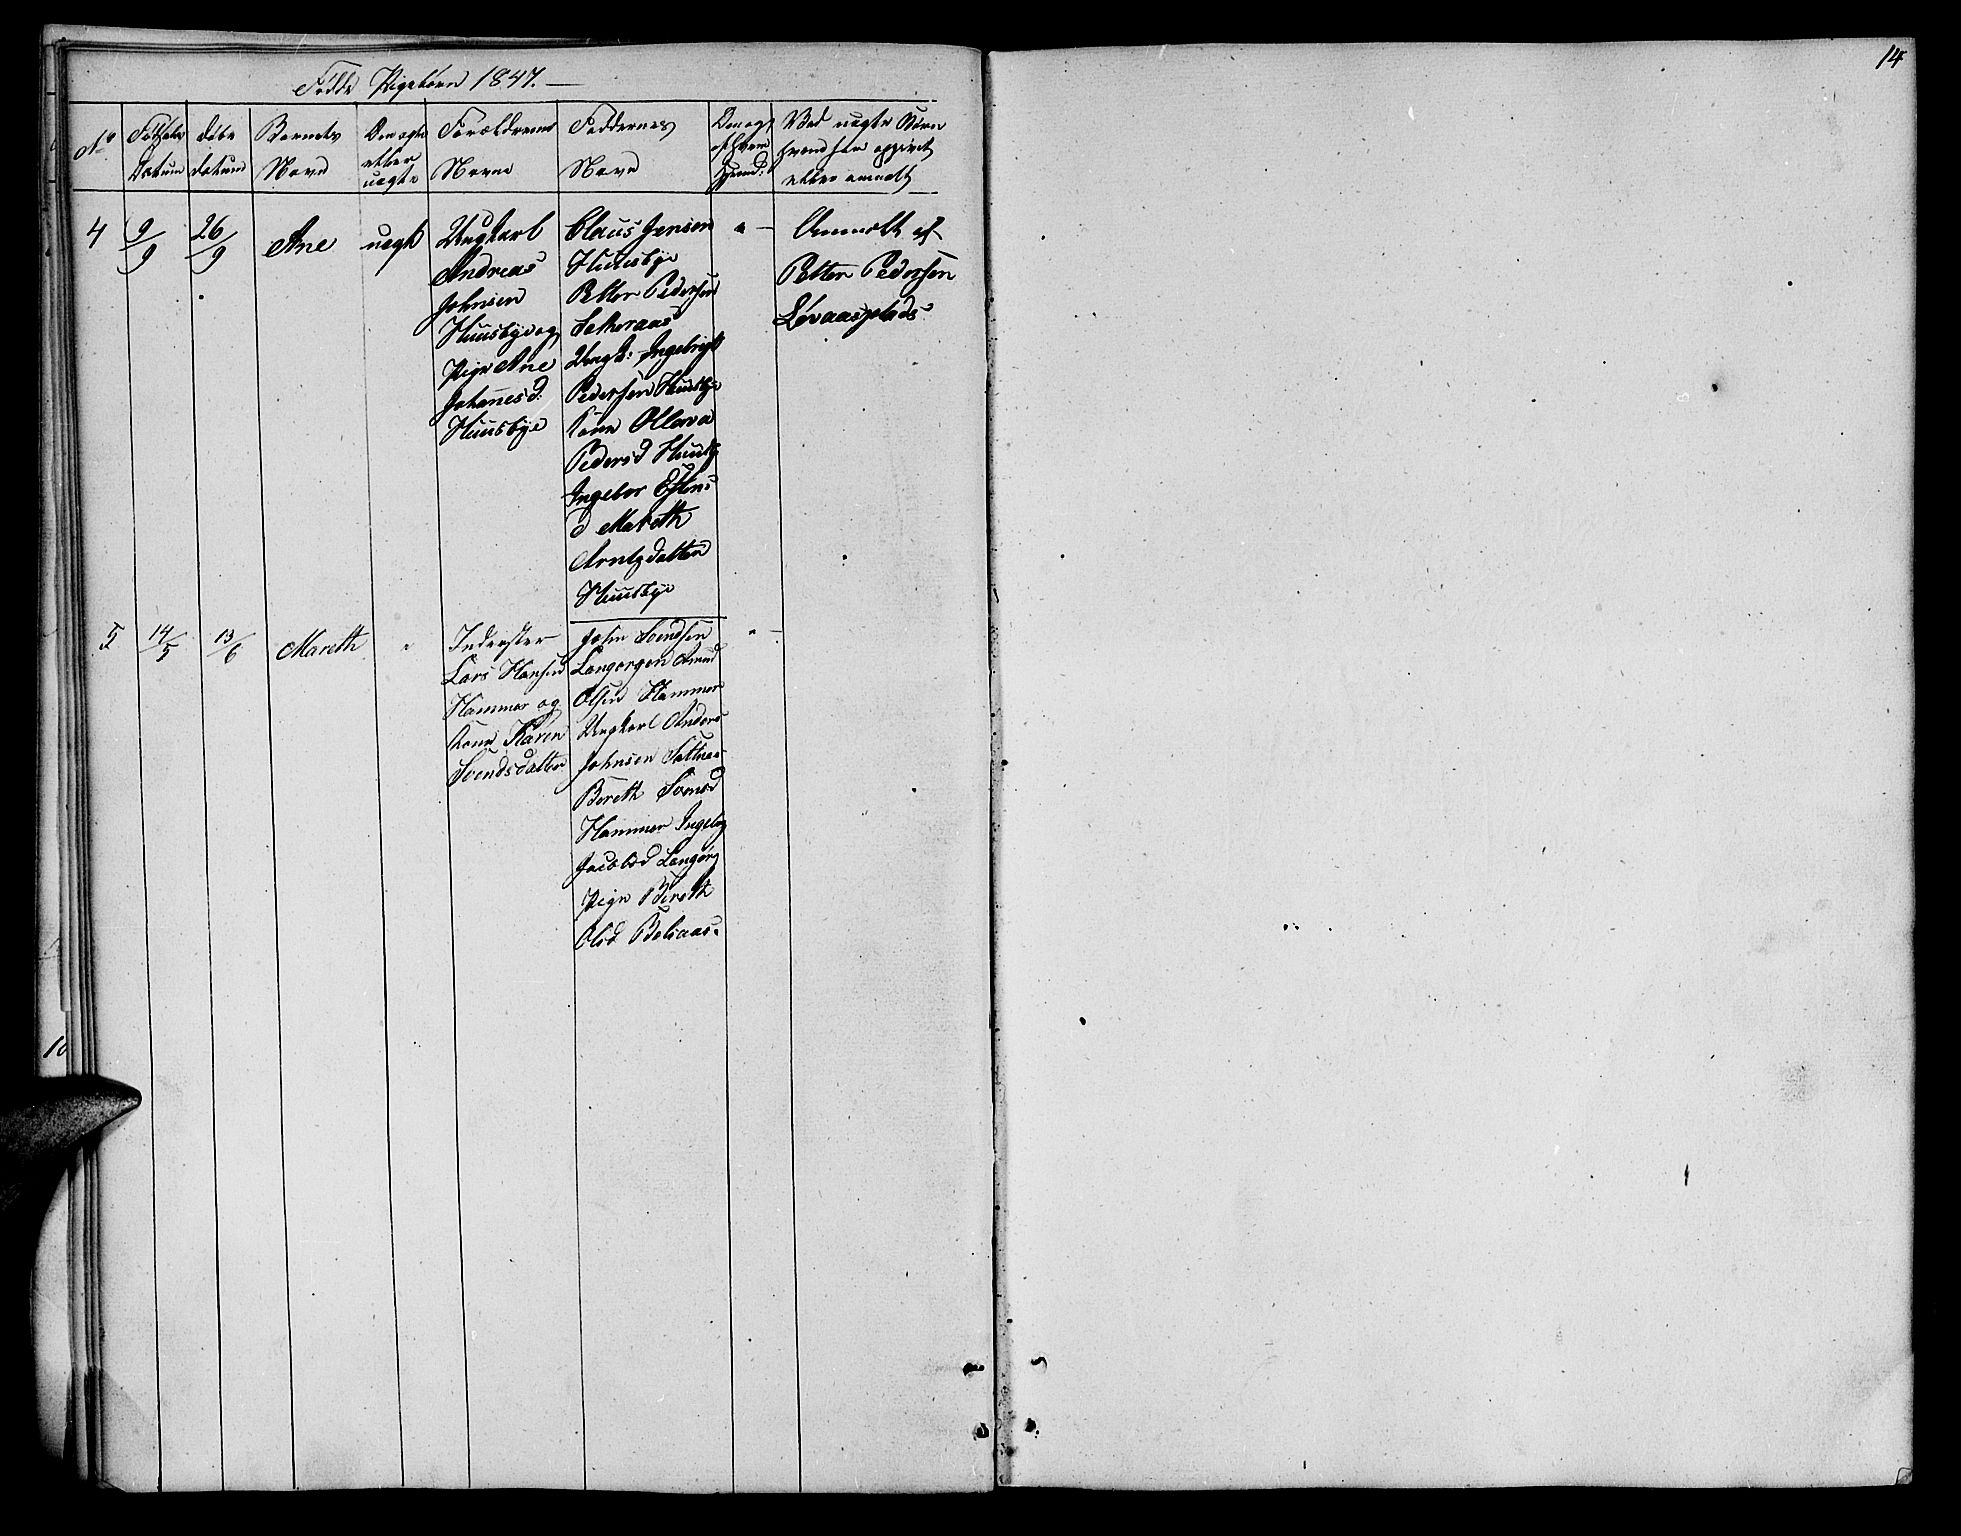 14
Fødte Pigebørn 1847. —
No
Fødsels Datum
Døbe datum
Barnets Navn
Om ægte eller uægte
Forældrenes Navne
Faddernes Navn
Ved uægte Børn
hvem har opgivet
eller anmelt
4
9/9
26/9
Ane
uægte
Ungkarl
Andreas
Johnsen
Huusbye og
Pige Ane
Johanesd:
Huusbye
Claus Jensen
Huusbye
Petter Pedersen
Ungk: Ingebrigt
Pedersen Huusbye
Kone Ollava
Pedersd Huusby
Ingebor Estens
d Mareth
Arntzdatter
Huusbye
" —
Anmelt af
Petter Pedersen
Løvaasplads
5
14/5
13/6
Mareth
"
Inderster
Lars Hansen
Hammer og
Kone Karen
Svendsdatter
John Svendsen
Langørgen Amund
Olsen Hammer
Ungkarl Anders
Johnsen
Bereth Svensd
Hammer Ingebog
Jacobsd Langørg
Pige Bereth
Olsd Belsaas.
" —
10